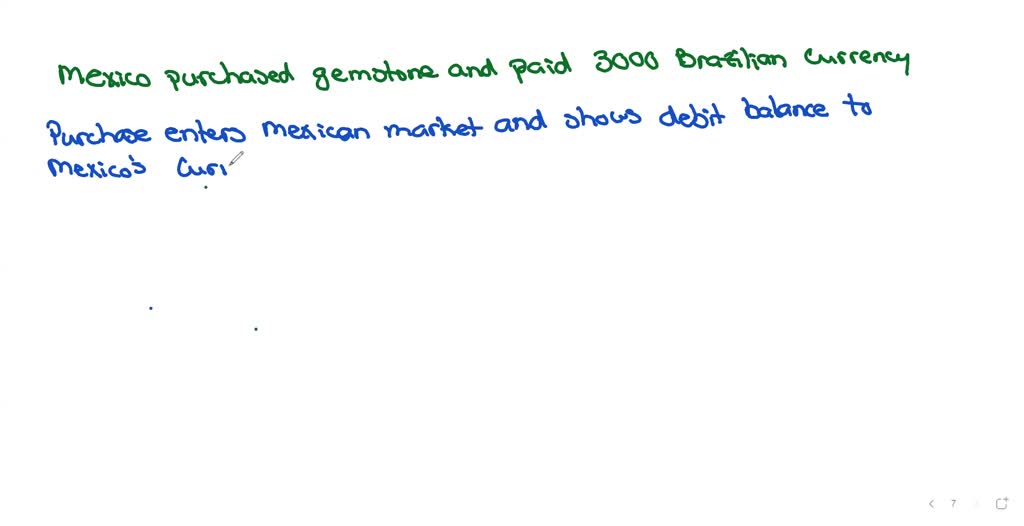 Mexico purchased gemstone and paid 3000 Brazilian currency
Purchase enters Mexican market and shows debit balance to
Mexico's Curr
7